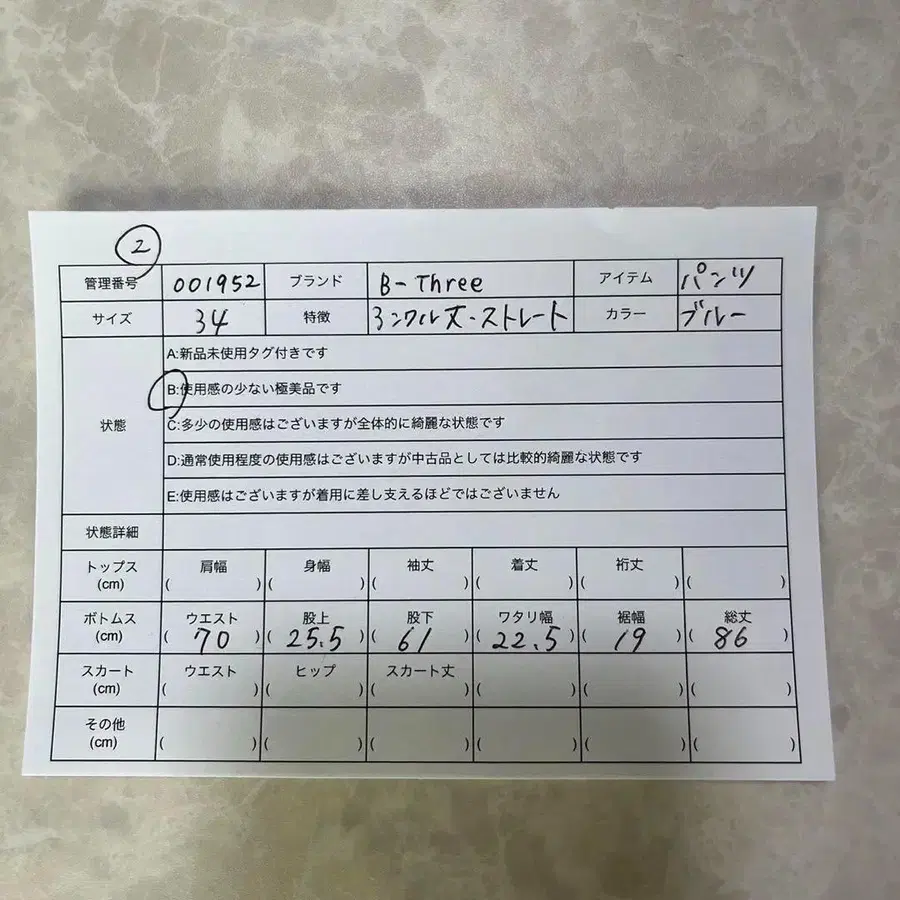 2
管理番号 001952 ブランド B-Three アイテム パンツ
サイズ 34 特徴 アンクル丈・ストレート カラー ブルー
状態
A:新品未使用タグ付きです
B:使用感の少ない極美品です
C:多少の使用感はございますが全体的に綺麗な状態です
D:通常使用程度の使用感はございますが中古品としては比較的綺麗な状態です
E:使用感はございますが着用に差し支えるほどではございません
状態詳細
トップス 肩幅 身幅 袖丈 着丈 裄丈
(cm) ( ) ( ) ( ) ( ) ( ) ( )
ボトムス ウエスト 股上 股下 ワタリ幅 裾幅 総丈
(cm) ( 70 ) ( 25.5 ) ( 61 ) ( 22.5 ) ( 19 ) ( 86 )
スカート ウエスト ヒップ スカート丈
(cm) ( ) ( ) ( ) ( ) ( ) ( )
その他
(cm) ( ) ( ) ( ) ( ) ( ) ( )